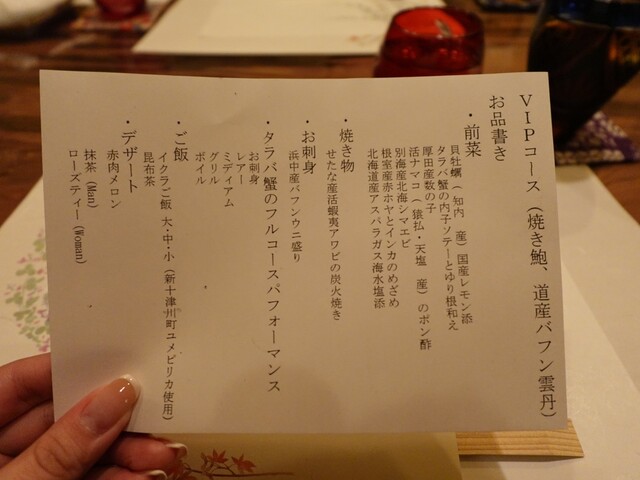 VIPコース（焼き鮑、道産バフン雲丹）
お品書き
・前菜
貝牡蠣（知内　産）国産レモン添
タラバ蟹の内子ソテーとゆり根和え
厚田産数の子
活ナマコ（猿払・天塩　産）のポン酢
別海産北海シマエビ
根室産赤ホヤとインカのめざめ
北海道産アスパラガス海水塩添
・焼き物
せたな産活蝦夷アワビの炭火焼き
・お刺身
浜中産バフンウニ盛り
・タラバ蟹のフルコースパフォーマンス
お刺身
レアー
ミディアム
グリル
ボイル
・ご飯
イクラご飯 大・中・小（新十津川町ユメピリカ使用）
昆布茶
・デザート
赤肉メロン
抹茶（Man）
ローズティー（Woman）